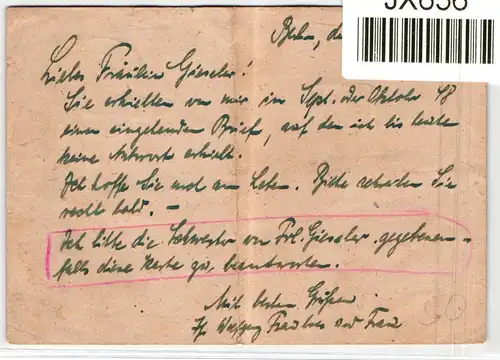 JX656
Berlin, de
Liebes Fräulein Gieseler!
Sie erhielten von mir im Sept. oder Oktober 48
einen eingehenden Brief, auf den ich bis heute
keine Antwort erhielt.
Ich hoffe Sie noch am Leben. Bitte schreiben Sie
recht bald. –
Ich bitte die Schwester von Frl. Gieseler gegebenen-
falls diese Karte zu beantworten.
Mit besten Grüßen
Wolfgang und Frau